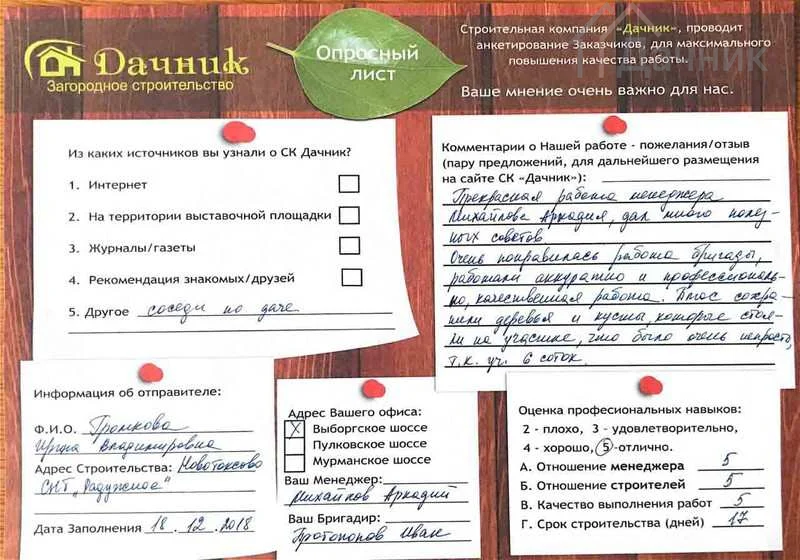 Дачник
Загородное строительство
Опросный
ЛИСТ
Строительная компания «Дачник», проводит
анкетирование Заказчиков, для максимального
повышения качества работы.
Ваше мнение очень важно для нас.
Дачник
Из каких источников вы узнали о СК Дачник?
1. Интернет
2. На территории выставочной площадки
3. Журналы/газеты
4. Рекомендация знакомых/друзей
5. Другое соседи по даче
Комментарии о Нашей работе - пожелания/отзыв
(пару предложений, для дальнейшего размещения
на сайте СК «Дачник»):
Прекрасная работа менеджера
Михайлова Аркадия, дал много полез-
ных советов
Очень понравилась работа бригады,
работали аккуратно и профессиональ-
но, качественная работа. Плюс сохра-
нили деревья и кусты, которые стоя-
ли на участке, что было очень непросто,
т.к. уч. 6 соток.
Информация об отправителе:
Ф.И.О. Громкова
Ирина Владимировна
Адрес Строительства: Новотоксово
СНТ "Радужное"
Дата Заполнения 18.12.2018
Адрес Вашего офиса:
X Выборгское шоссе
Пулковское шоссе
Мурманское шоссе
Ваш Менеджер:
Михайлов Аркадий
Ваш Бригадир:
Протопопов Иван
Оценка профессиональных навыков:
2 - плохо, 3 - удовлетворительно,
4 - хорошо, 5 -отлично.
А. Отношение менеджера 5
Б. Отношение строителей 5
В. Качество выполнения работ 5
Г. Срок строительства (дней) 17